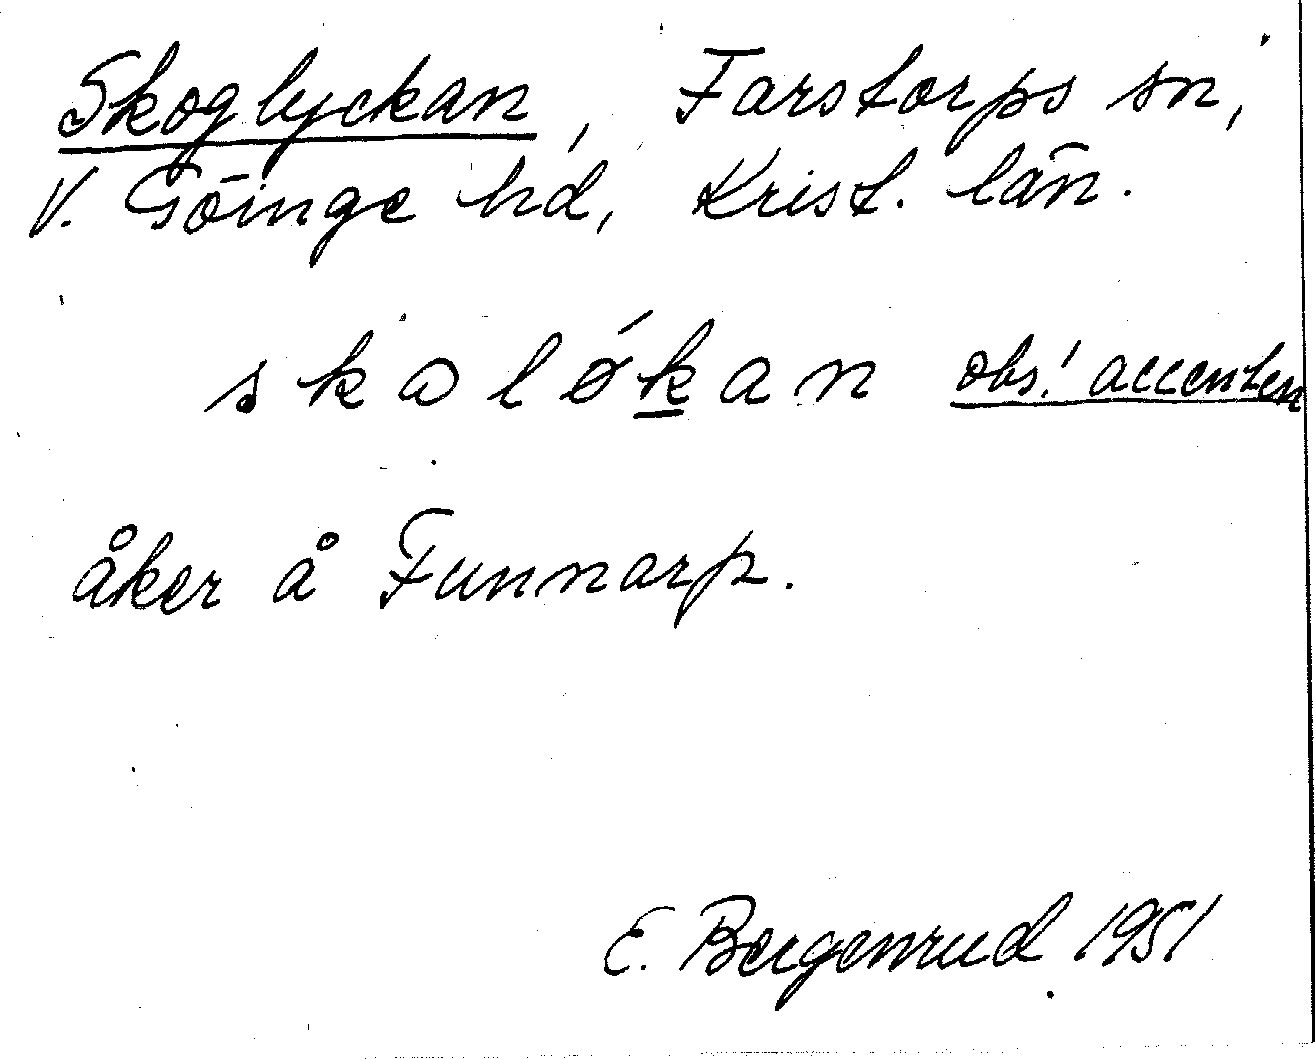 Skoglyckan, Farstorps sn,
V. Göinge hd, Krist. län.
skalǿkan obs! accenten
åker å Funnarp.
E. Bergenrud 1951